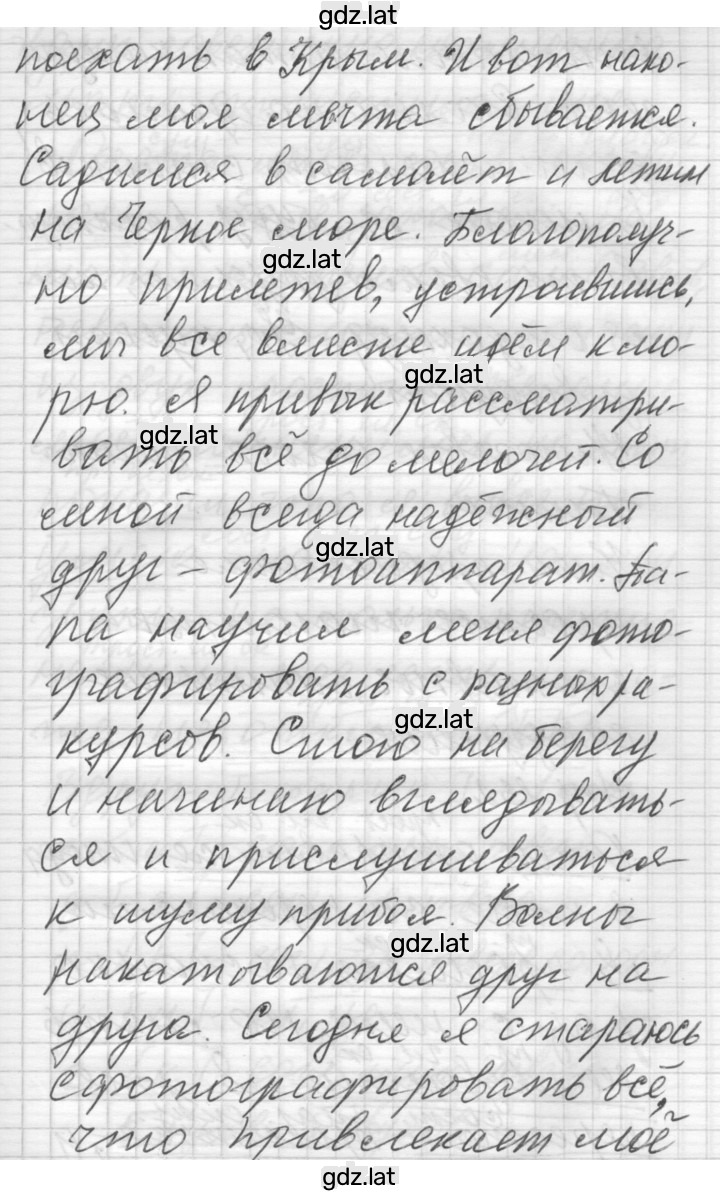 gdz.lat
поехать в Крым. И вот нако-
нец моя мечта сбывается.
Садимся в самолёт и летим
на Черное море. Благополуч-
gdz.lat
но прилетев, устроившись,
мы все вместе идём к мо-
gdz.lat
рю. Я привык рассматри-
gdz.lat
вать всё до мелочей. Со
мной всегда надёжный
gdz.lat
друг – фотоаппарат. Па-
па научил меня фото-
графировать с разных ра-
gdz.lat
курсов. Стою на берегу
и начинаю вглядывать-
ся и прислушиваться
к шуму прибоя. Волны
gdz.lat
накатываются друг на
друга. Сегодня я стараюсь
сфотографировать всё,
что привлекает моё
gdz.lat